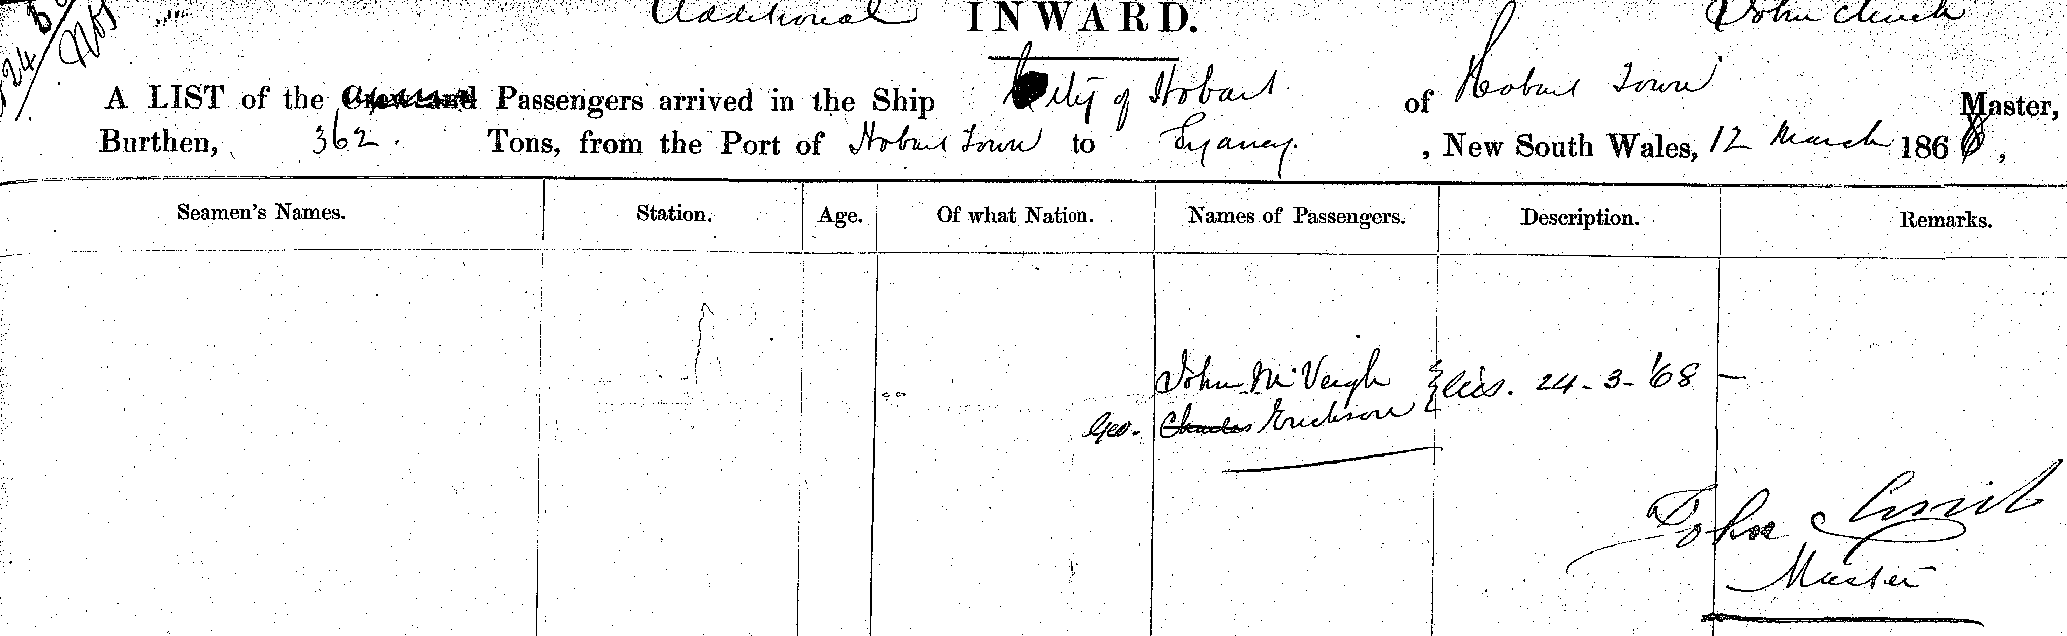 Additional INWARD. John Clinch
A LIST of the Crew and Passengers arrived in the Ship City of Hobart of Hobart Town Master,
Burthen, 362. Tons, from the Port of Hobart Town to Sydney. , New South Wales, 12 March 1868,
Seamen's Names. Station. Age. Of what Nation. Names of Passengers. Description. Remarks.
John McVeigh } dis. 24-3-'68 —
Geo. Charles Erickson
John Clinch
Master